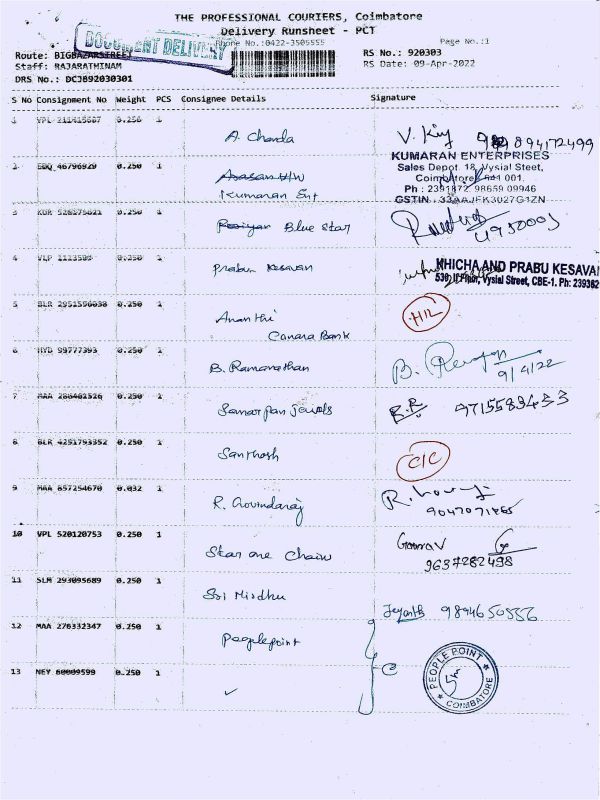 THE PROFESSIONAL COURIERS, Coimbatore
Delivery Runsheet - PCT
DOCUMENT DELIVERY
Phone No.:0422-3505555
Page No.:1
Route: BIGBAZARSTREET
RS No.: 920303
Staff: RAJARATHINAM
RS Date: 09-Apr-2022
DRS No.: DCJB92030301
S No Consignment No Weight PCS Consignee Details Signature
1 VPL 0.250 1 A. Chanda V. 9894172499
KUMARAN ENTERPRISES
Sales Depot. 18, Vysial Steet,
Coimbatore 641 001.
Ph : 2391872, 98659 09946
GSTIN : 33AAJFK3027G1ZN
2 EDQ 46796929 0.250 1 Kumaran Ent
3 0.250 1 Blue Star
4 VLP 0.250 1 Prabu Kesavan
KHICHA AND PRABU KESAVAN
Floor, Vysial Street, CBE-1. Ph: 239362
5 BLR 2951596038 0.250 1 Ananthi
Canara Bank
6 HYD 99777393 0.250 1 B. Ramanathan B. 9/4/22
7 MAA 0.250 1 Samarpan Jewels R.R 9715583433
8 BLR 4251793352 0.250 1 Santhosh C/C
9 MAA 657254670 0.032 1 R. Govindaraj R.
10 VPL 520120753 0.250 1 Star one Chain Gourav
9637282498
11 SLM 293095689 0.250 1 Sri Mirdhu
Jeyanth 9894650556
12 MAA 276332347 0.250 1 Peoplepoint
13 NEY 60009599 0.250 1 ✓ C
PEOPLE POINT
COIMBATORE